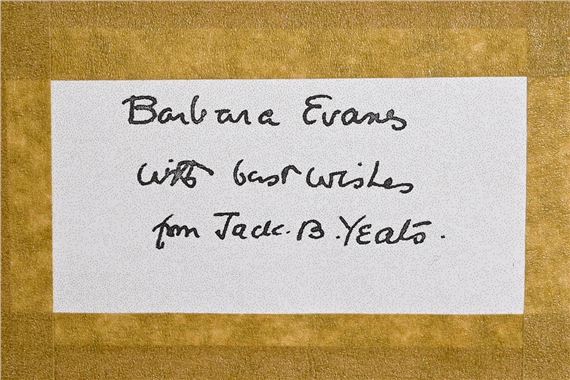 Barbara Evans
with best wishes
from Jack. B. Yeats.